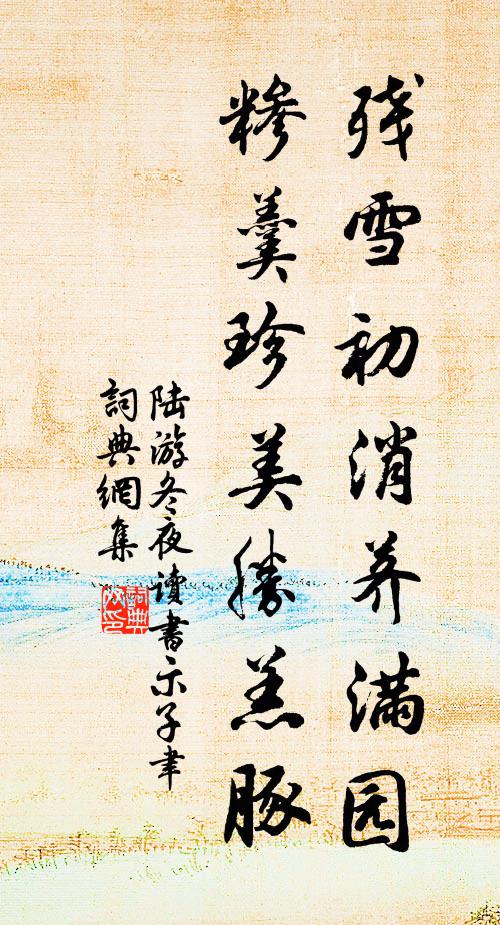 残雪初消荠满园
糁羹珍美勝羔豚
陆游冬夜讀書示子聿
詞典網集